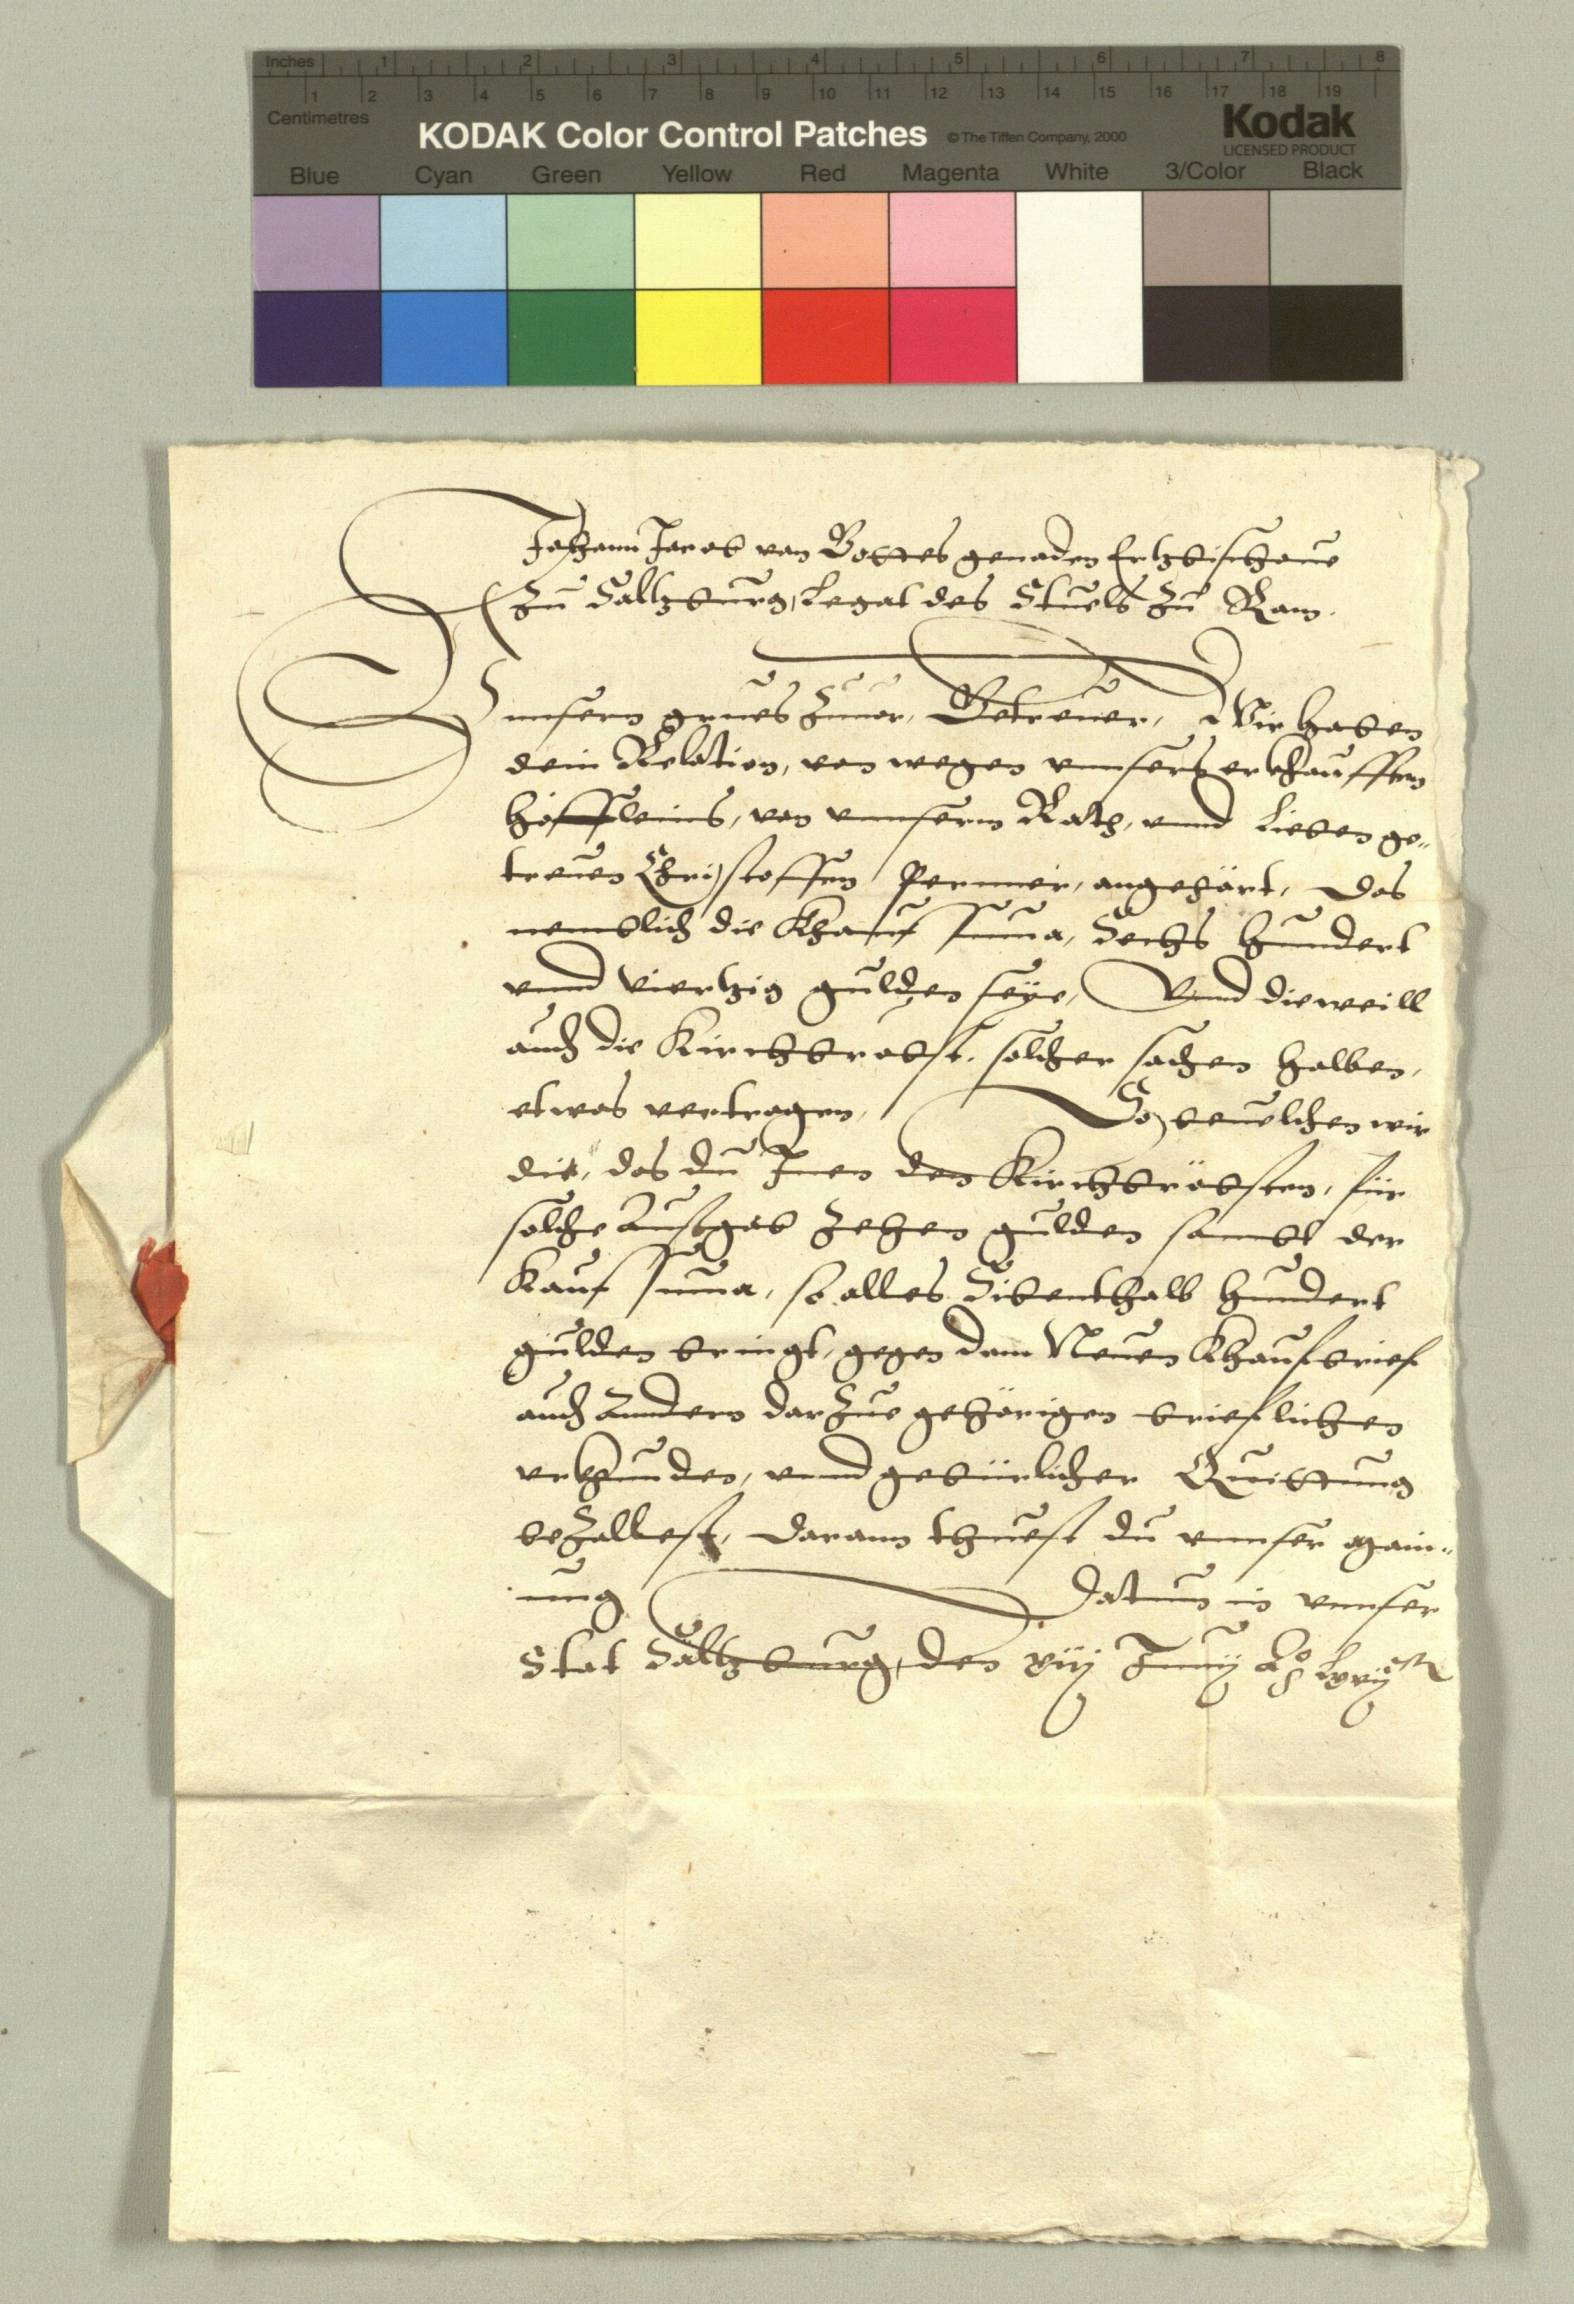 Inches 1 2 3 4 5 6 7 8
1 2 3 4 5 6 7 8 9 10 11 12 13 14 15 16 17 18 19
Centimetres
KODAK Color Control Patches © The Tiffen Company, 2000 Kodak
LICENSED PRODUCT
Blue Cyan Green Yellow Red Magenta White 3/Color Black
Johann Jacob von Gottes genaden Ertzbischoue
zu Saltzburg, Legat des Stuels zu Rom.
Unsern grues zuuor, Getreuer, Wir haben
dein Relation, von wegen vnnsers erkhaufften
höffleins, von vnnserm Rath, vnnd lieben ge-
treuen Christoffen Perner, angehört, das
nemblich die Khauf Suma, Sechs hundert
vnnd viertzig gulden seye, Vnnd dieweill
auch die Kirchbröbst, solcher sachen halben,
etwas vertragen, So beuelchen wir
dir, das du Inen den Kirchbröbsten, für
solche Ausgab zehen gulden sambt der
Kauf Suma, so alles Sibenthalb hundert
gulden bringt, gegen dem Neuen Khaufbrief
auch anndern darzue gehörigen brieflichen
vrkhunden, vnnd gebürlicher Quittung
bezallest, Darann thuest du vnnser main-
ung Datum in vnnser
Stat Saltzburg, den viij Junij Aō Lxvij